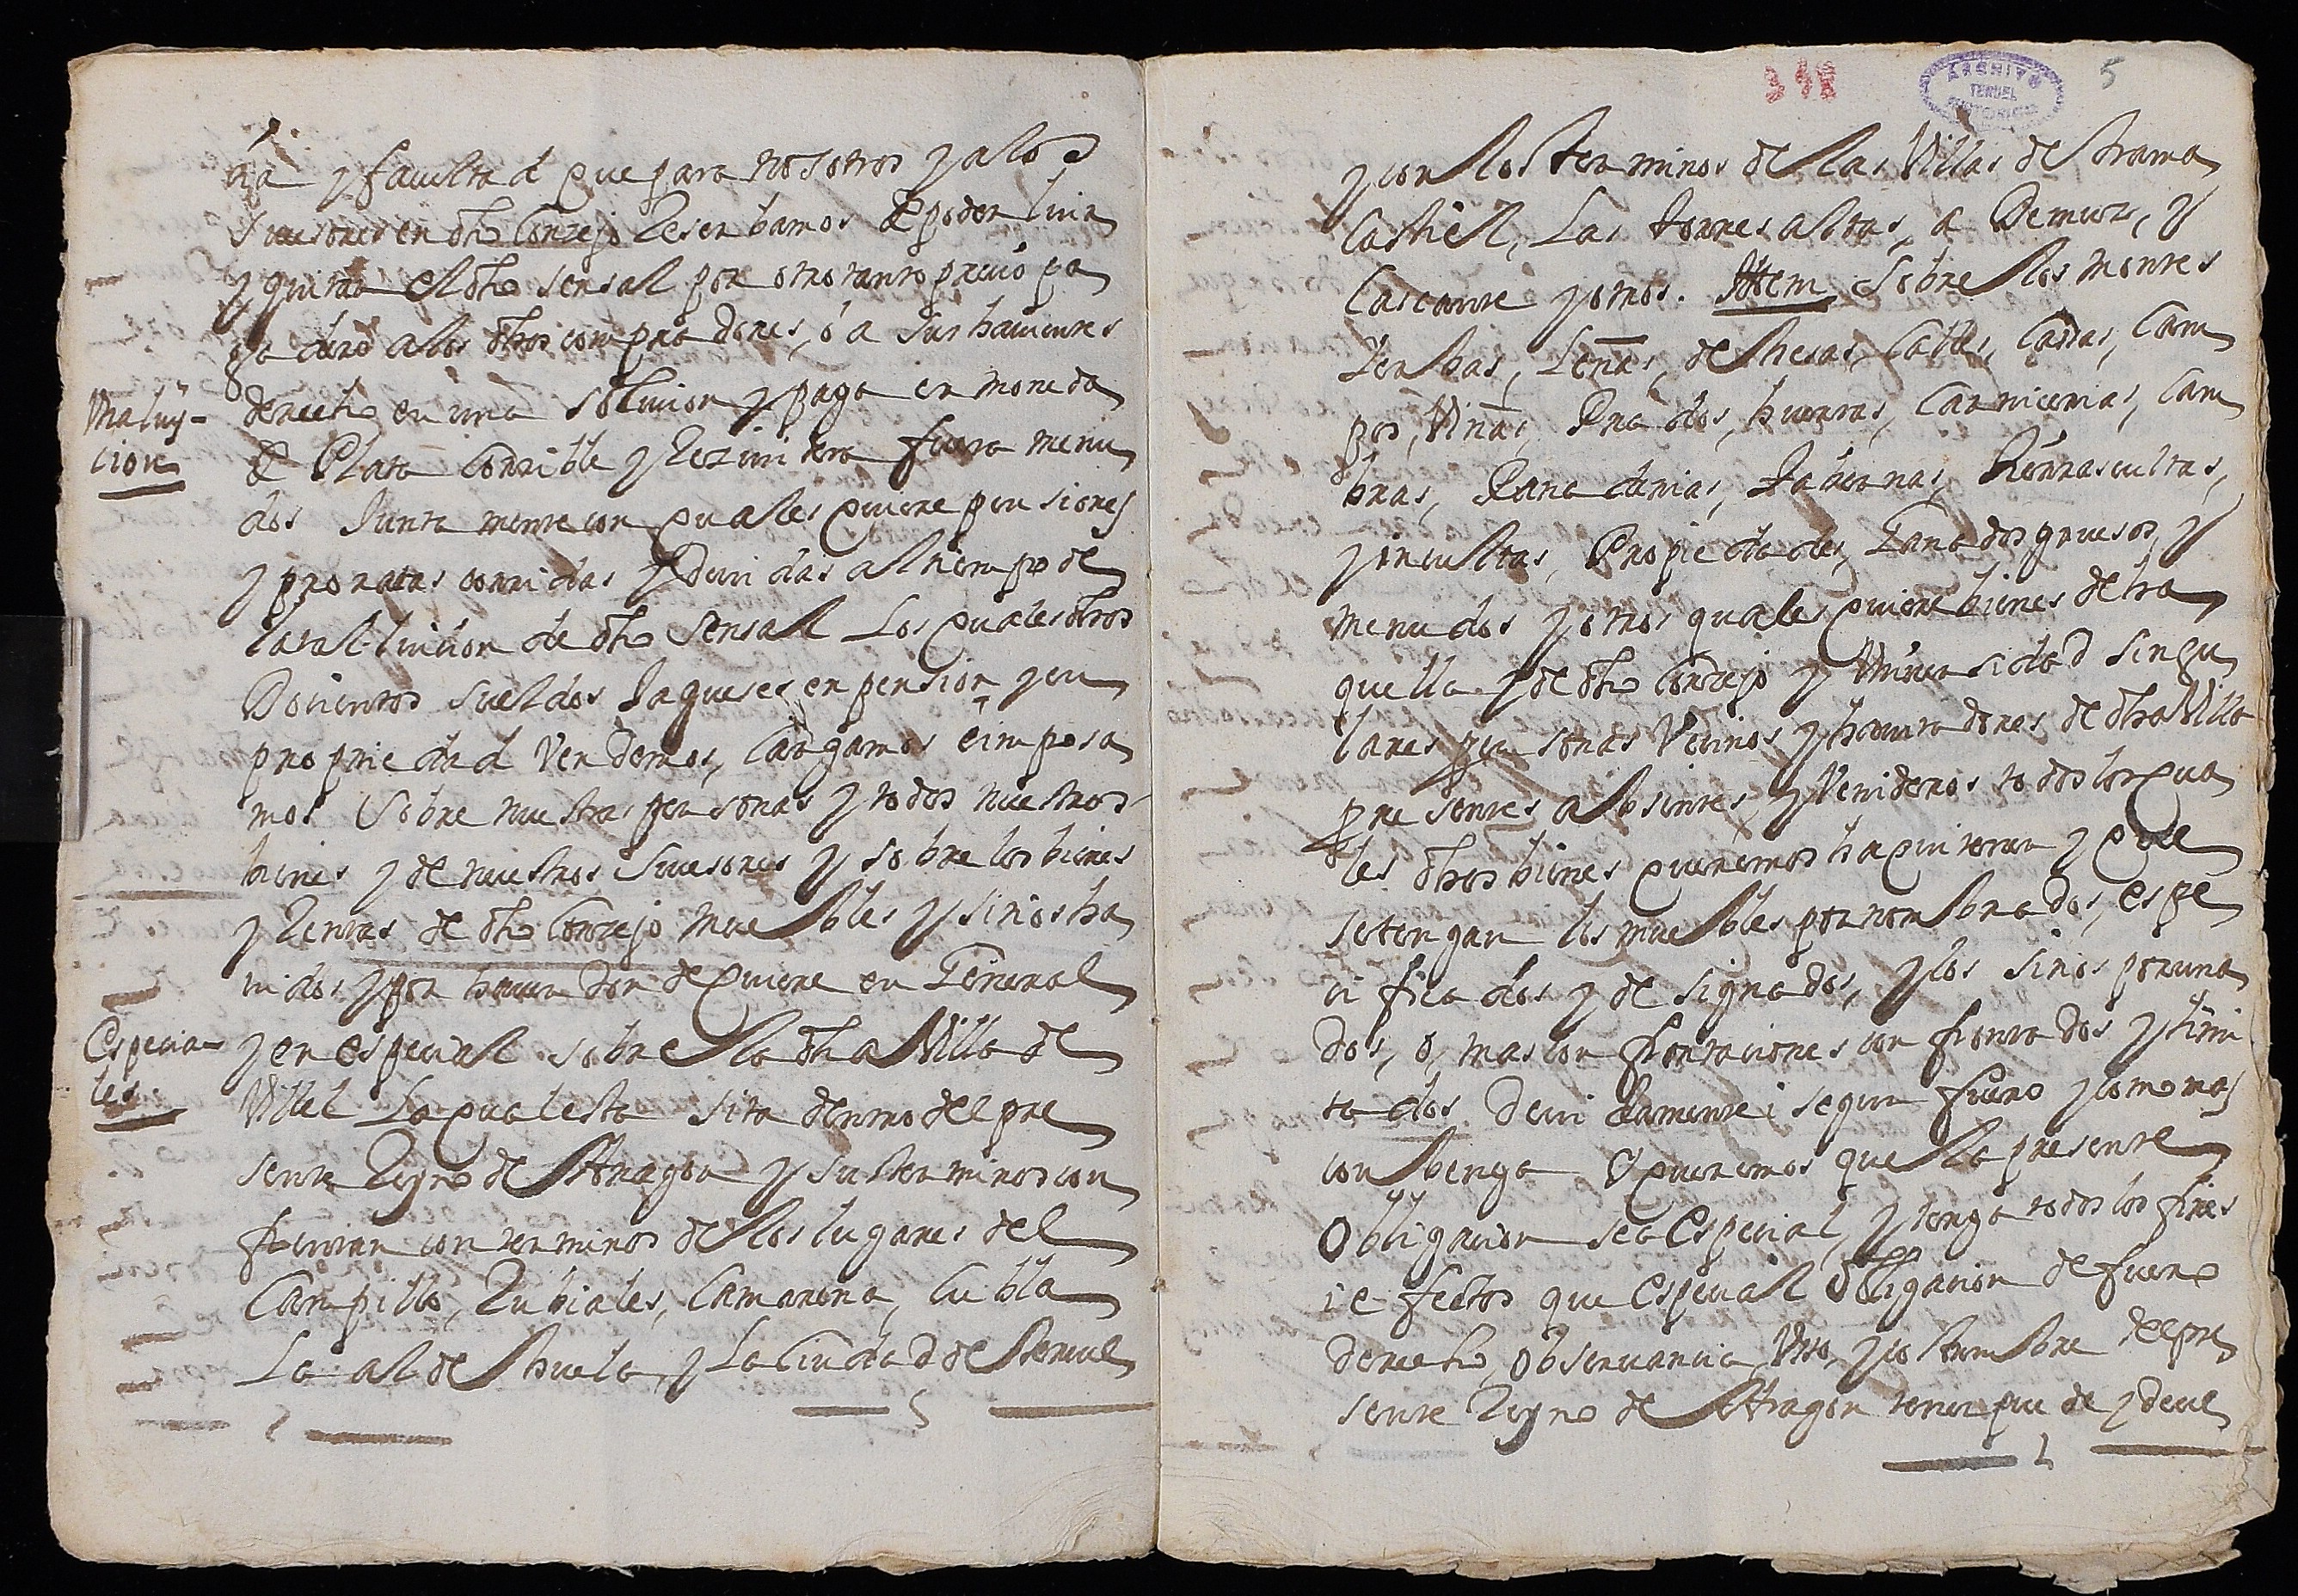 cia y facultad que para nosotros y a los
sucesores en dho Conzejo Reserbamos de poder luir
y quitar el dho sensal por otro tanto precio pa
gadero a los dhos compradores, ó a sus havientes
Una luy-
cion
derecho en una solucion y paga en moneda
de Plata Corrible y Rezividera fuera menu
dos Junta mente con quales quiere pensiones
y prorratas corridas y devidas al tiempo de
la tal luicion de dho sensal Los quales dhos
Docientos sueldos Jaqueses en pension y en
propriedad Vendemos, Cargamos é imposa
mos Sobre nuestras personas y todos nuestros
bienes y de nuestros sucesores y sobre los bienes
y Rentas de dho Conzejo muebles y sitios ha
vidos y por haver don de quiere en General
Especia
les
y en especial sobre la dha Villa de
Villel La qual esta sita dentro del pre
sente Reyno de Aragon y sus terminos con
frentan con terminos de los lugares del
Campillo, Rubiales, Camarena, Cubla
La aldehuela, y La Ciudad de Teruel
348
ARCHIVO
TERUEL
5
y con los terminos de las Villas de trama
Castiel, Las torres altas, a Demuz, y
Cascante y otros. Ittem Sobre los montes
Yerbas, Leñas, dehesas, Cassas, Cam
pos, Viñas, Prados, huertas, Carnicerias, Cam
bras, Panaderias, Tabernas, tierras cultas,
y incultas, Propiedades, Ganados gruesos, y
menudos y otros quales quiere bienes de ha
quella y de dho Conzejo y Universidad singu
lares personas Vecinos y havitadores de dha Villa
presentes absentes, y Venideros todos los qua
les dhos bienes queremos ha qui tener y que
se tengan los muebles por nombrados, espe
cificados y designados, y los sitios por una
dos, o, mas confrontaciones confrontados y limi
tados Devidamente i segun fuero y como mas
conbenga Y queremos que la presente
Obligacion sea Especial, y tenga todos los fines
i efectos que Especial obligacion de fuero
derecho, observancia, Vso, y costumbre del pre
sente Reyno de Aragon tener puede y deve